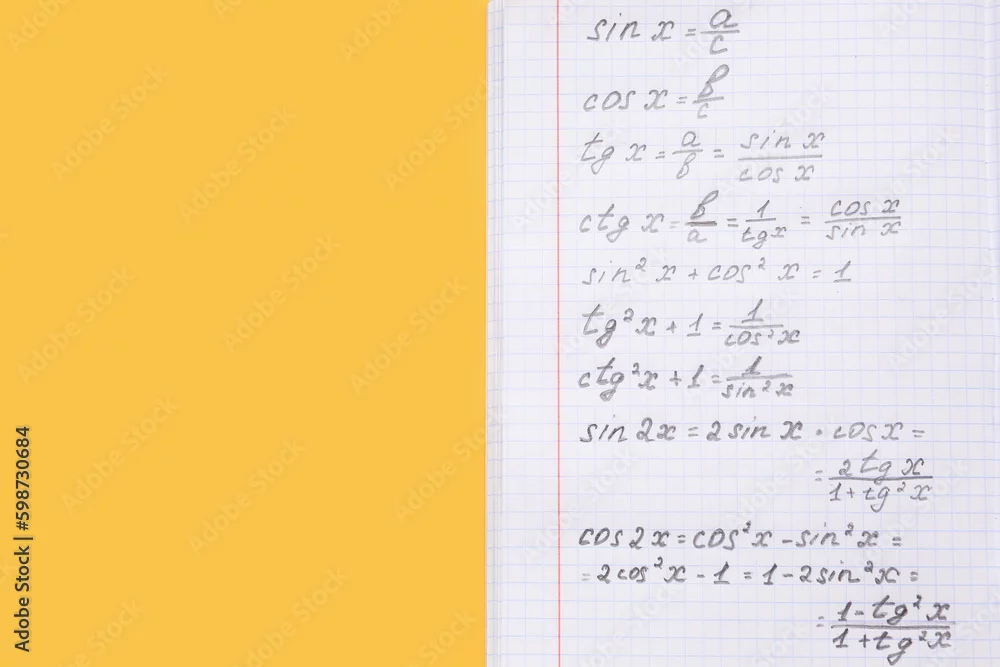 sin x = a/c
cos x = b/c
tg x = a/b = sin x/cos x
ctg x = b/a = 1/tg x = cos x/sin x
sin² x + cos² x = 1
tg² x + 1 = 1/cos² x
ctg² x + 1 = 1/sin² x
sin 2x = 2 sin x · cos x =
= 2 tg x/1 + tg² x
cos 2x = cos² x - sin² x =
= 2 cos² x - 1 = 1 - 2 sin² x =
= 1 - tg² x/1 + tg² x
Adobe Stock | #598730684